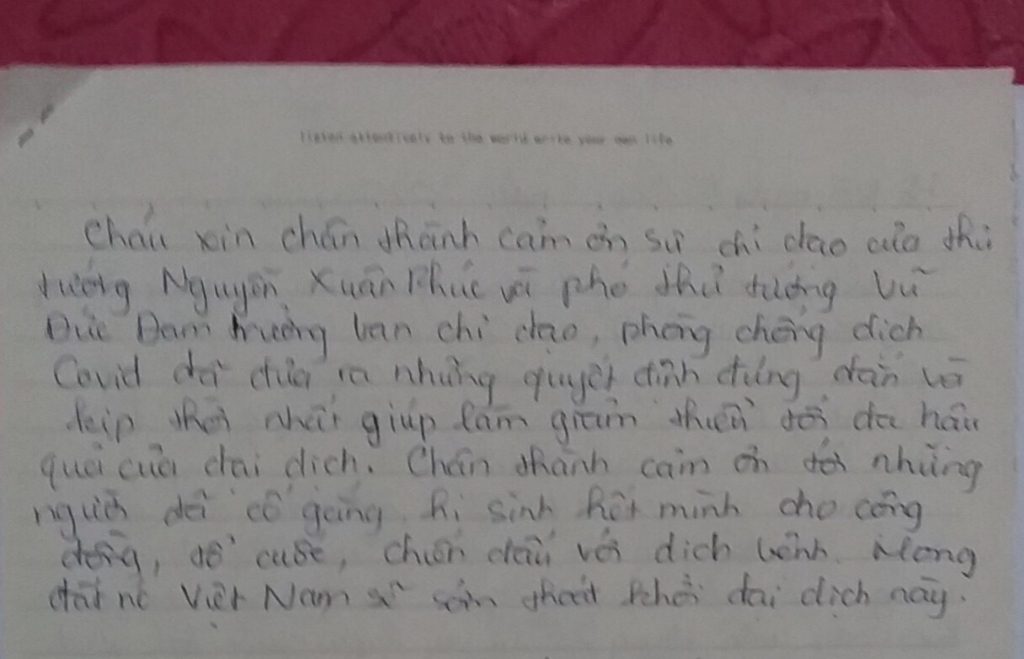 listen attentively to the world write your own life
Cháu xin chân thành cảm ơn sự chỉ đạo của thủ
tướng Nguyễn Xuân Phúc và phó thủ tướng Vũ
Đức Đam trưởng ban chỉ đạo, phòng chống dịch
Covid đã đưa ra những quyết định đúng đắn và
kịp thời nhất giúp làm giảm thiểu tối đa hậu
quả của đại dịch. Chân thành cảm ơn tới những
người đã cố gắng hi sinh hết mình cho cộng
đồng, để cuộc, chiến đấu với dịch bệnh. Mong
đất nc Việt Nam sẽ sớm thoát khỏi đại dịch này.